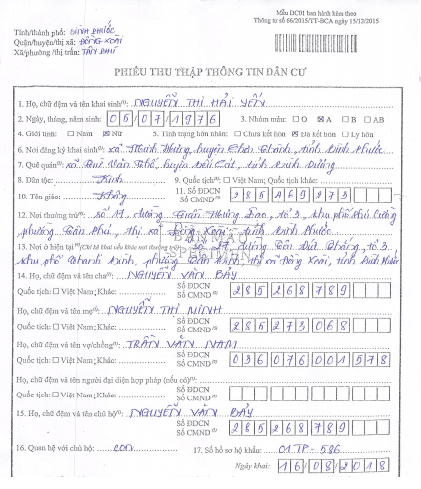 Mẫu DC01 ban hành kèm theo
Thông tư số 66/2015/TT-BCA ngày 15/12/2015
Tỉnh/thành phố: BÌNH PHƯỚC
Quận/huyện/thị xã: ĐỒNG XOÀI
Xã/phường/thị trấn: TÂN PHÚ
PHIẾU THU THẬP THÔNG TIN DÂN CƯ
1. Họ, chữ đệm và tên khai sinh(1): NGUYỄN THỊ HẢI YẾN
2. Ngày, tháng, năm sinh: 05/07/1976 3. Nhóm máu: ☐ O ☒ A ☐ B ☐ AB
4. Giới tính: ☐ Nam ☒ Nữ 5. Tình trạng hôn nhân: ☐ Chưa kết hôn ☒ Đã kết hôn ☐ Ly hôn
6. Nơi đăng ký khai sinh: xã Minh Hưng, huyện Chơn Thành, tỉnh Bình Phước
7. Quê quán: xã huyện Bến Cát, tỉnh Bình Dương
8. Dân tộc: Kinh 9. Quốc tịch: ☐ Việt Nam; Quốc tịch khác:
10. Tôn giáo: Không 11. Số ĐDCN
Số CMND 285469273
12. Nơi thường trú: số 17, đường Trần Hưng Đạo, tổ 3, khu phố Phú Cường
phường Tân Phú, thị xã Đồng Xoài, tỉnh Bình Phước
SPECIMEN
13. Nơi ở hiện tại (Chỉ kê khai nếu khác nơi thường trú): tổ 3
khu phố Thanh Bình, phường Tân Bình, thị xã Đồng Xoài, tỉnh Bình Phước
14. Họ, chữ đệm và tên cha: NGUYỄN VĂN BẢY
Quốc tịch: ☐ Việt Nam; Khác: Số ĐDCN
Số CMND 285268789
Họ, chữ đệm và tên mẹ: NGUYỄN THỊ MINH
Quốc tịch: ☐ Việt Nam; Khác: Số ĐDCN
Số CMND 285273068
Họ, chữ đệm và tên vợ/chồng: TRẦN VĂN NAM
Quốc tịch: ☐ Việt Nam; Khác: Số ĐDCN
Số CMND 036076001578
Họ, chữ đệm và tên người đại diện hợp pháp (nếu có)
Quốc tịch: ☐ Việt Nam; Khác: Số ĐDCN
Số CMND
15. Họ, chữ đệm và tên chủ hộ: NGUYỄN VĂN BẢY
Số ĐDCN
Số CMND 285268789
16. Quan hệ với chủ hộ: con 17. Số hồ sơ hộ khẩu: 01.TP-586
Ngày khai: 16/08/2018